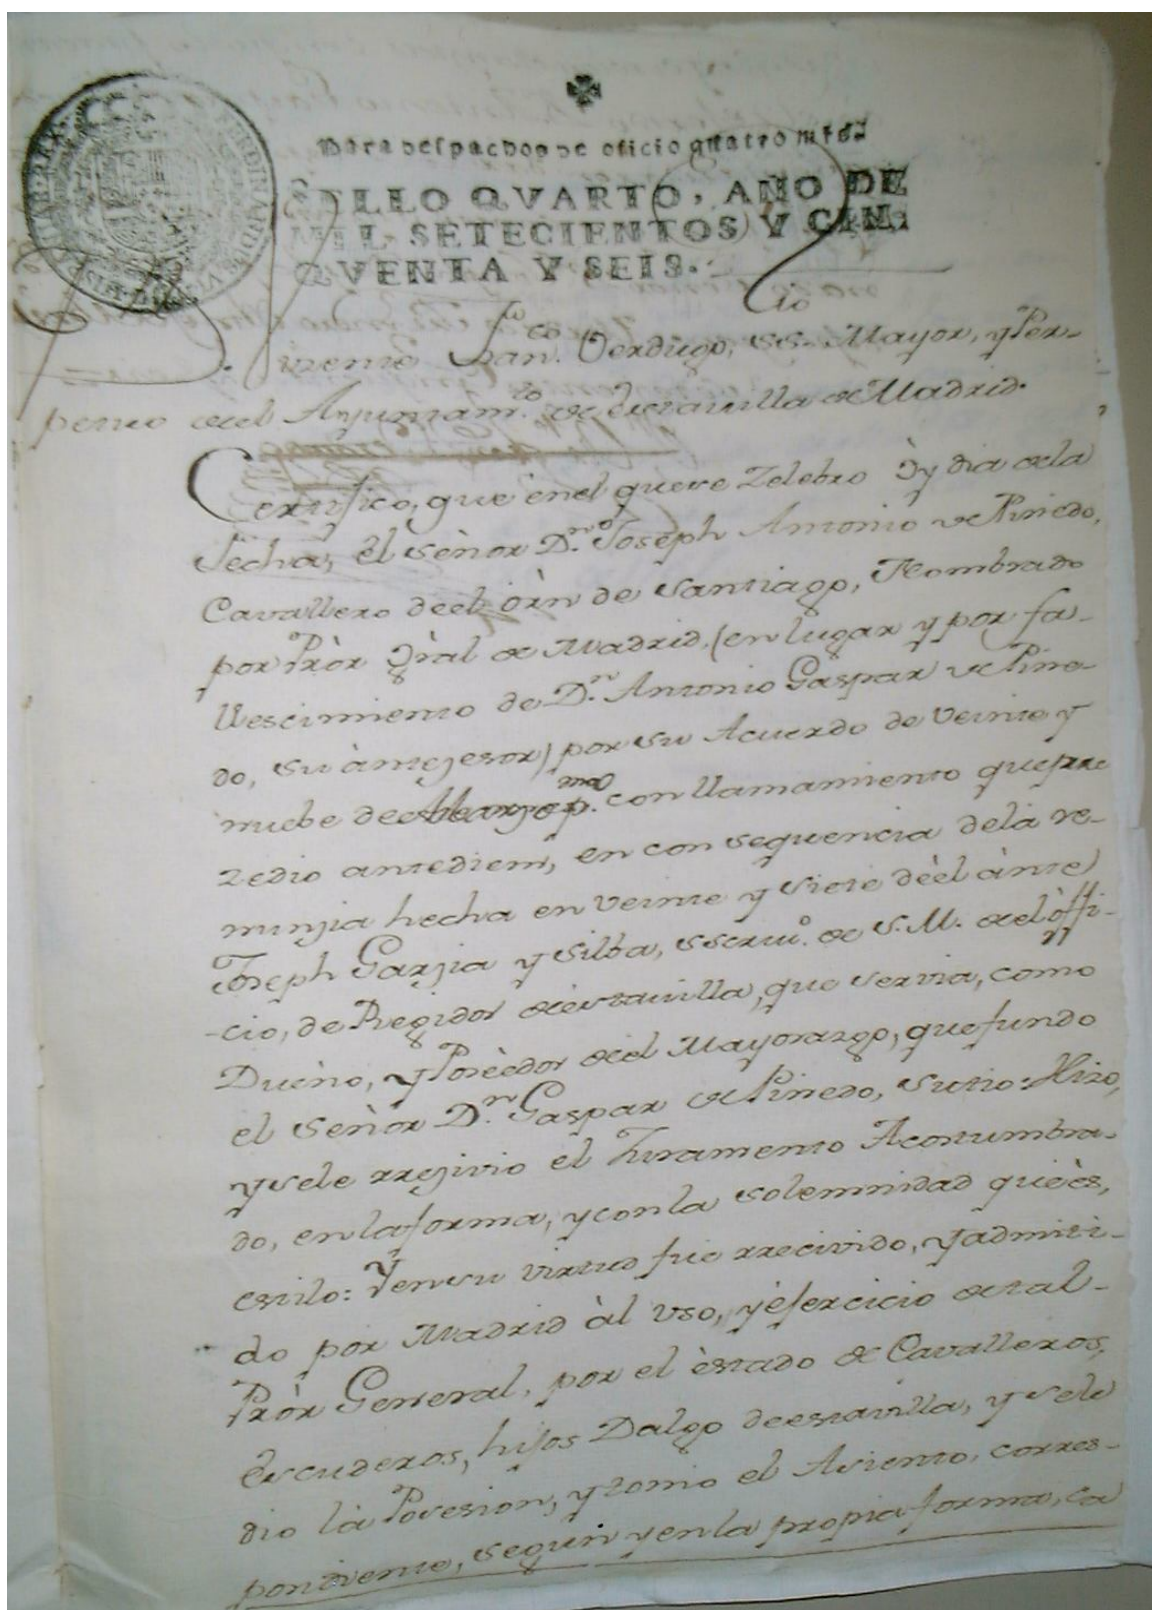 Para despachos de oficio quatro mrs.
SELLO QVARTO, AÑO DE
MIL SETECIENTOS Y CIN-
QVENTA Y SEIS.
Verdugo, ss.no Mayor, y Per-
del Ayuntam.to de estavilla de Madrid.
Certifico, que en el que se Zelebro Oy dia de la
fecha, el señor D.n Joseph Antonio de Pinedo,
Cavallero de el òrn de Santiago, Nombrado
por Pròr Gràl de Madrid, (en lugar y por fa-
llescimiento de D.n Antonio Gaspar de Pine-
do, su àntezesor) por su Acuerdo de veinte y
nuebe de Marzo p.mo con llamamiento que pre
zedio antediem, en consequencia de la re-
nunzia hecha en veinte y siete dèel ànte
Joseph Garzia y Silba, esscriu.o de S.M. de el òffi-
-cio, de Regidor de estavilla, que servia, como
Dueño, y Poseèdor de el Mayorazgo, que fundo
el Señòr D.n Gaspar de Pinedo, su tio: Hizo,
y se le rrezivio el Juramento Acostumbra-
do, en la forma, y con la solemnidad que ès,
estilo: Y en su virtud fue rrecivido, y admiti-
do por Madrid àl uso, y èjercicio de tal-
Pròr General, por el èstado de Cavalleros,
Escuderos, hijos Dalgo de estavilla, y se le
dio là Posesion, y tomò el Asiento, corres-
pondiente, segun y en la propia forma, ca